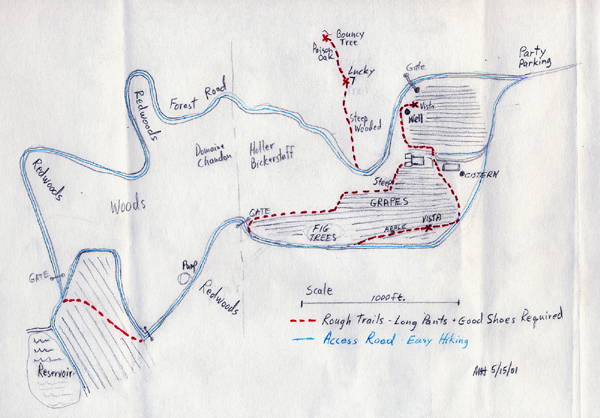 Bouncy
Tree
Poison
Oak
Lucky
7
Gate
Party
Parking
Vista
Well
Forest Road
Redwoods
Steep
Wooded
Domaine
Chandon
Holler
Bickerstaff
Redwoods
Woods
Steep
CISTERN
GRAPES
GATE
FIG
TREES
APPLE
VISTA
GATE
Pump
Redwoods
Reservoir
Scale
1000ft.
Rough Trails - Long Pants + Good Shoes Required
Access Road - Easy Hiking
MH 5/15/01